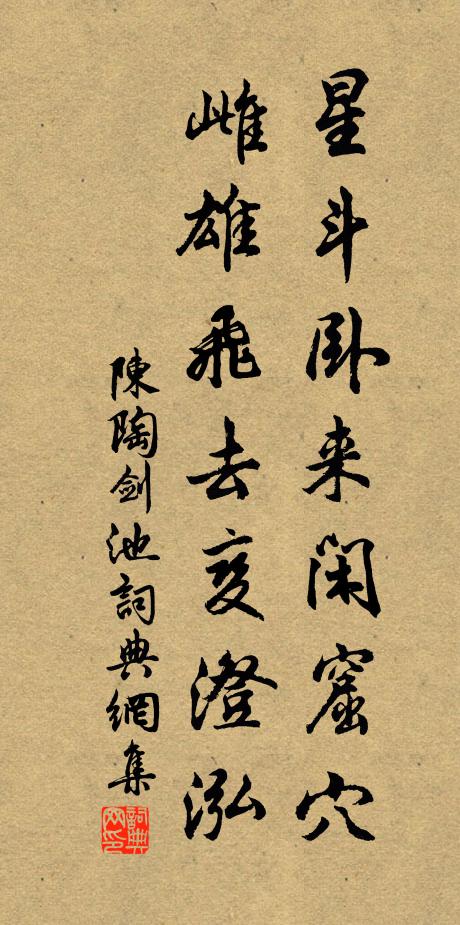 星斗卧来闲窟穴
雌雄飛去变澄泓
陳陶剑池詞典網集
詞典网印